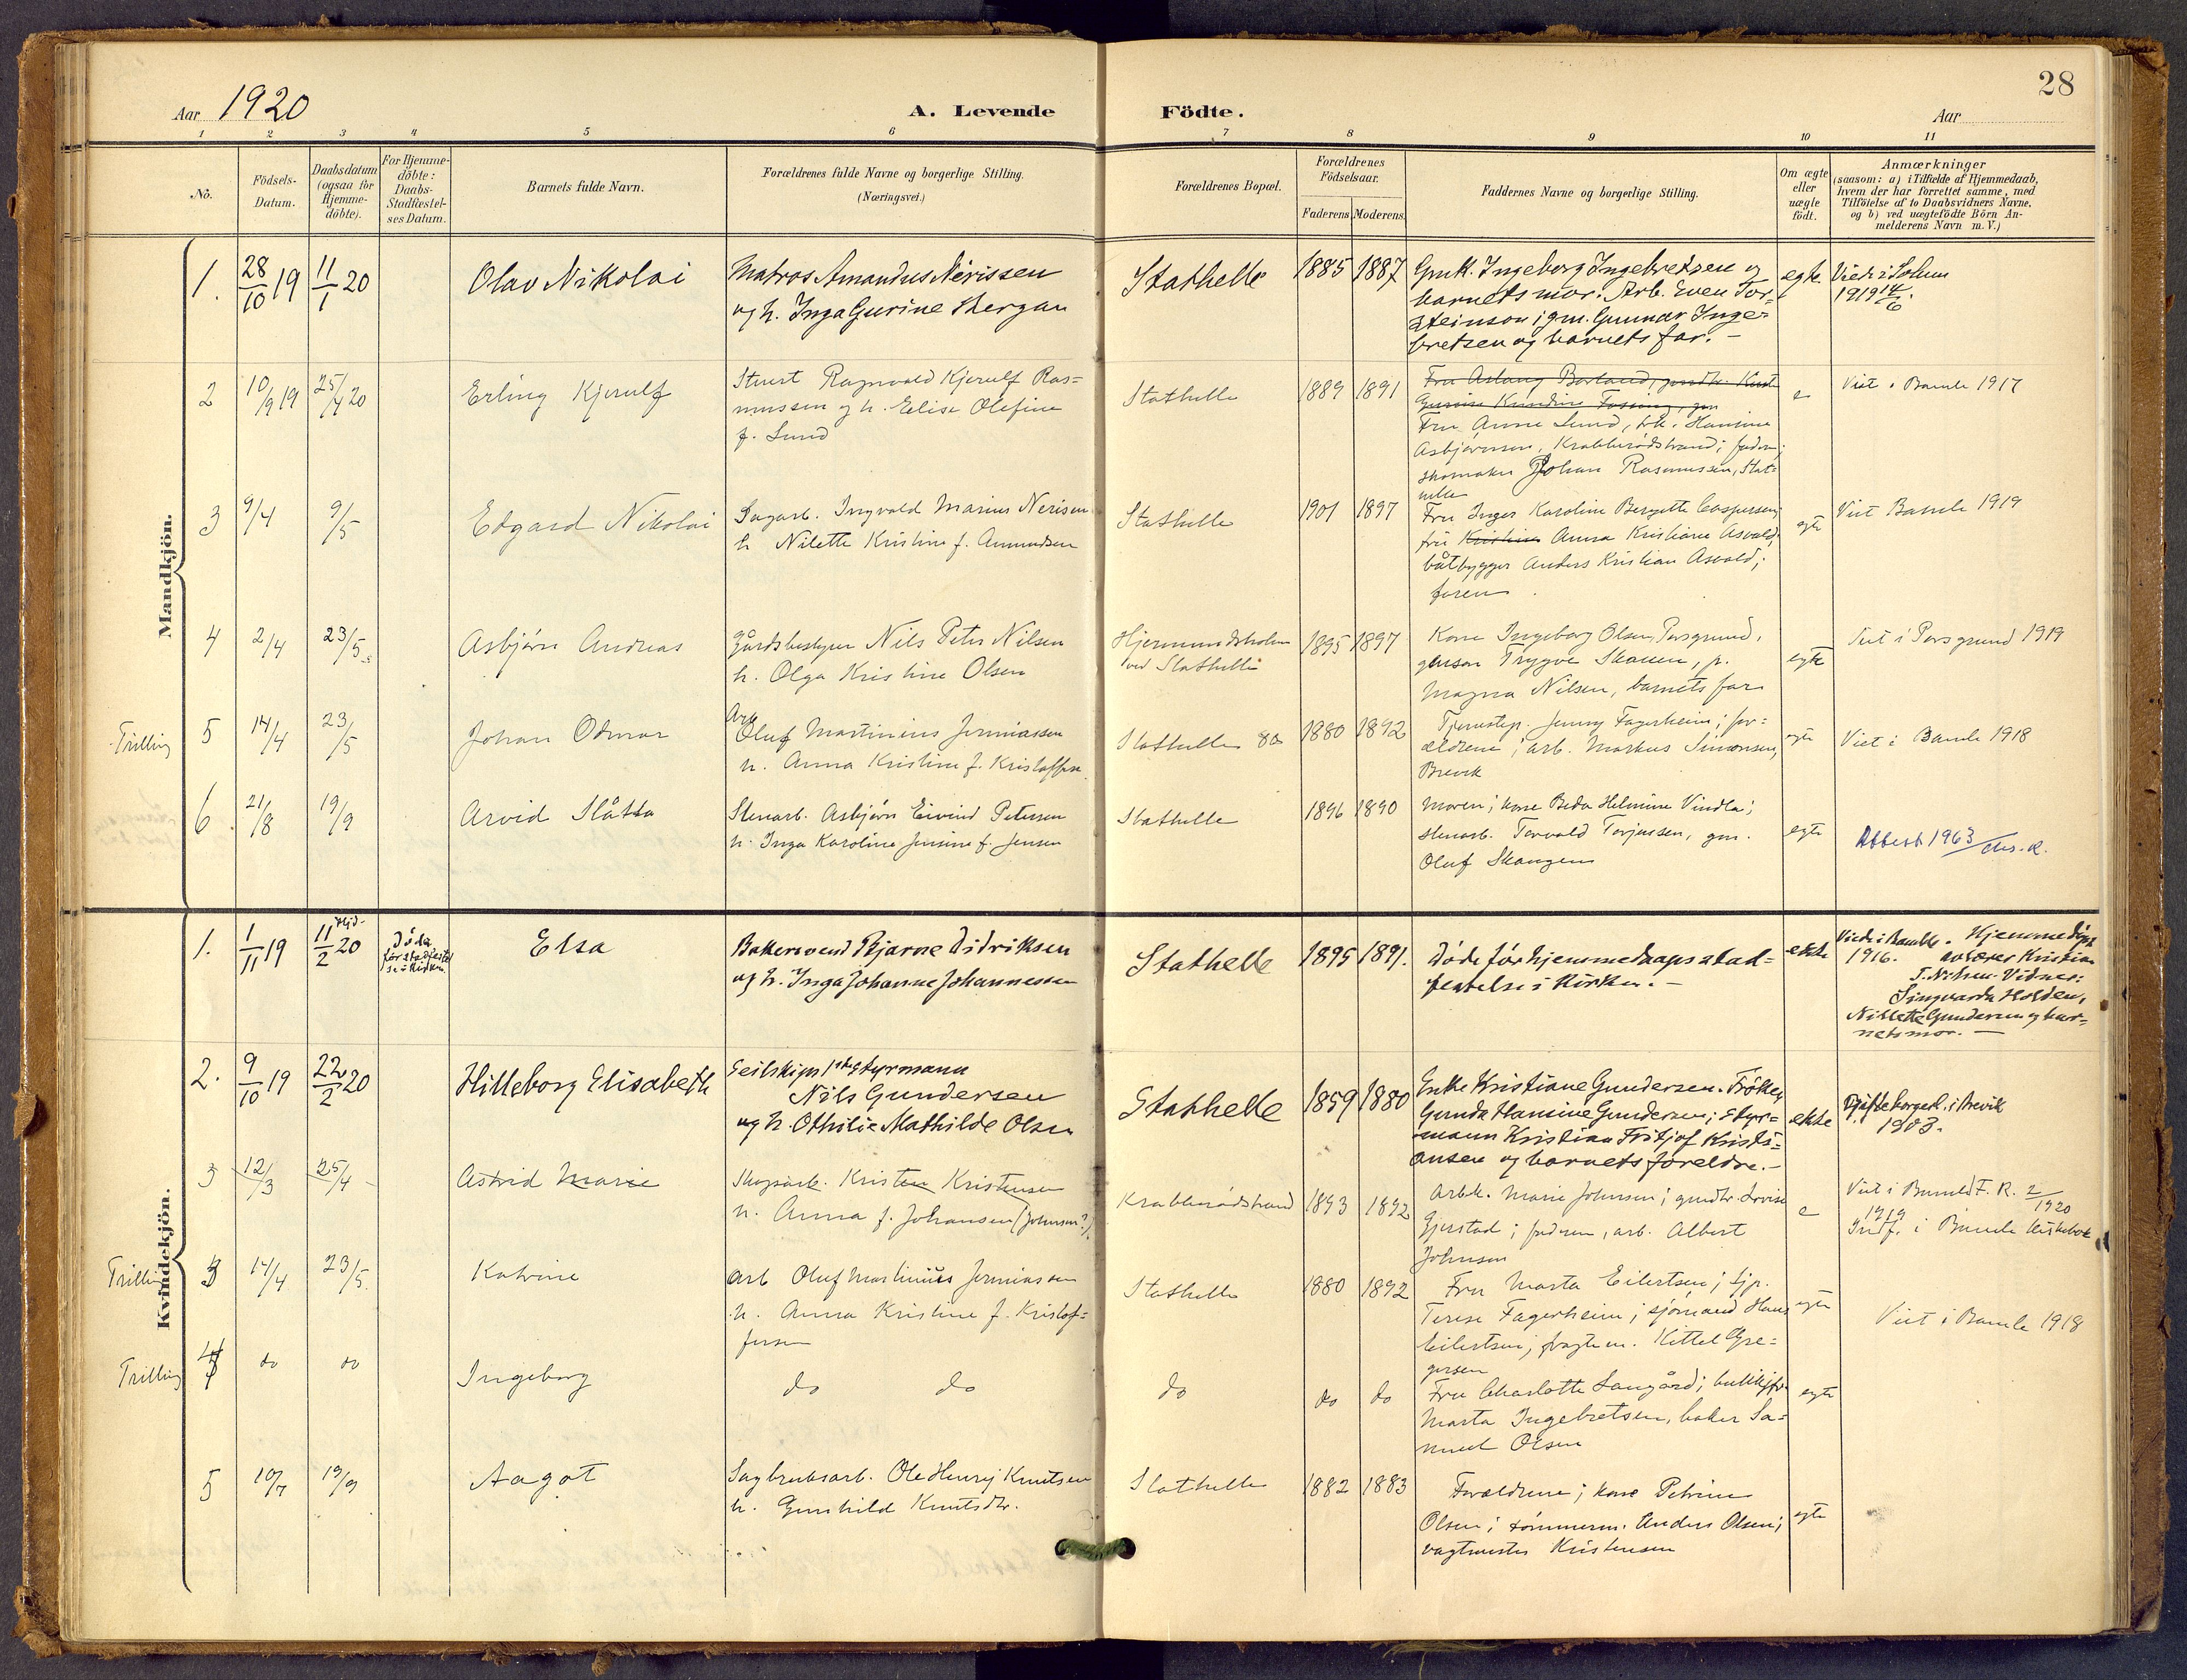 28
Aar 1920
A. Levende Födte.
Aar
1 2 3 4 5 6 7 8 9 10 11
No.
Födsels-
Datum.
Daabsdatum
(ogsaa for
Hjemme-
döbte).
For Hjemme-
döbte:
Daabs-
Stadfæstel-
ses Datum.
Barnets fulde Navn.
Forældrenes fulde Navne og borgerlige Stilling.
(Næringsvei.)
Forældrenes Bopæl.
Forældrenes
Födselsaar.
Faderens Moderens
Faddernes Navne og borgerlige Stilling.
Om ægte
eller
uægte
født.
Anmærkninger
(saasom: a) i Tilfælde af Hjemmedaab,
hvem der har forrettet samme, med
Tilföielse af to Daabsvidners Navne,
og b) ved uægtefödte Börn An-
melderens Navn m. V.)
Mandkjön.
1. 28/10 19 11/1 20
Olav Nikolai
Matros Amandus Nerissen
og h. Inga Gurine Thergan
Stathelle
1885 1887
Gmk. Ingeborg Ingebretsen og
barnets mor. Arb. Even Tor-
steinson, gm. Gunnar Inge-
bretsen og barnets far. -
egte
Viede i Solum
1919 14/6.
2 10/9 19 25/4 20
Erling Kjerulf
Stuert Ragnvald Kjerulf Ras=
mussen og h. Elise Olefine
f. Lund
Stathelle
1889 1891
Fru Aslaug Borland,
Fru Anne Lund, Hansine
Asbjørnsen, Krabberødstrand; faderen;
skomaker Johan Rasmussen, Stat=
helle
e
Viet i Bamle 1917
3 9/4 9/5
Edgard Nikolai
Sagarb. Ingvald Marius Nerisen
h. Nilette Kristine f. Amundsen
Stathelle
1901 1897
Fru Inger Karoline Bergette Caspersen;
fru Kristine Anna Kristiane Asvald;
båtbygger Anders Kristian Asvald;
faren
egte
Viet Bamle 1919
4 2/4 23/5
Asbjørn Andreas
Gårdsbestyrer Nils Peter Nilsen
h. Olga Kristine Olsen
Hjermundsholm
ved Stathelle
1895 1897
Kone Ingeborg Olsen, Porsgrund,
Trygve Skauen, p.
Magna Nilsen, barnets far
egte
Viet i Porsgrund 1919
Trilling 5 14/4 23/5
Johan Odmar
Arb
Oluf Martinius Jermiassen
h. Anna Kristine f. Kristoffersen
Stathelle
1880 1892
Tjenestep. Jenny Fagerheim; for=
ældrene; arb. Markus Simonsen,
Brevik
egte
Viet i Bamle 1918
6 21/8 19/9
Arvid Slåtta
Stenarb. Asbjørn Eivind Petersen
h. Inga Karoline Jensine f. Jensen
Stathelle
1896 1890
Moren; kone Beda Helmine Vindla;
stenarb. Torvald Torjussen, gm.
Oluf Skaugen
egte
Attest 1963
Kvindekjön.
1. 1/11 19 11/2 20 Hjd-
Döde
før stadfestel
se i kirken.
Elsa
Bakersvend Bjarne Didriksen
og h. Inga Johanne Johannessen
Stathelle
1895 1891.
Døde før hjemmedaapsstad=
festelse i kirken. -
ekte
Viede i Bamble
1916.
Hjemmedöpt
av Lærer Kristian
T. Nilsen. Vidner:
Singvarda Holden,
Nillette Gundersen og bar=
nets mor. -
2. 9/10 19 22/2 20
Hilleborg Elisabeth
Seilskips 1ste styrmann
Nils Gundersen
og h. Othilie Mathilde Olsen
Stathelle
1859 1880
Enke Kristiane Gundersen. Frøken
Gunda Hansine Gundersen; Styr=
mann Kristian Fritjof Kristi=
ansen og barnets foreldre. -
ekte
Gifte borgerl. i Brevik
1903.
3 12/3 25/4
Astrid Marie
Skogsarb. Kristen Kristensen
h. Anna f. Johansen (Johnsen?)
Krabberødstrand
1893 1892
Arbk. Marie Johnsen; gmdtr. Lovise
Gjerstad; faderen, arb. Albert
Johnsen
e
Viet i
1919
Indf. i Bamle kirkebok
2/1920
Trilling 3 14/4 23/5.
Katrine
Arb Oluf Martinius Jermiassen
h. Anna Kristine f. Kristof=
fersen
Stathelle
1880 1892
Fru Marta Eilertsen; tjp.
Terese Fagerheim; sjømand Hans
Eilertsen; fragtem. Kittel Gre=
gersen
egte
Viet i Bamle 1918
Trilling 4 do do
Ingeborg
do do
do
do do
Fru Charlotte Langård;
Marta Ingebretsen, baker Sa=
muel Olsen
egte
5 10/7 19/9
Aagot
Sagbruksarb. Ole Henry Knutsen
h. Gunhild Knutsdtr.
Stathelle
1882 1883
Forældrene; kone Petrine
Olsen; tømmerm. Anders Olsen;
vagtmester Kristensen
egte